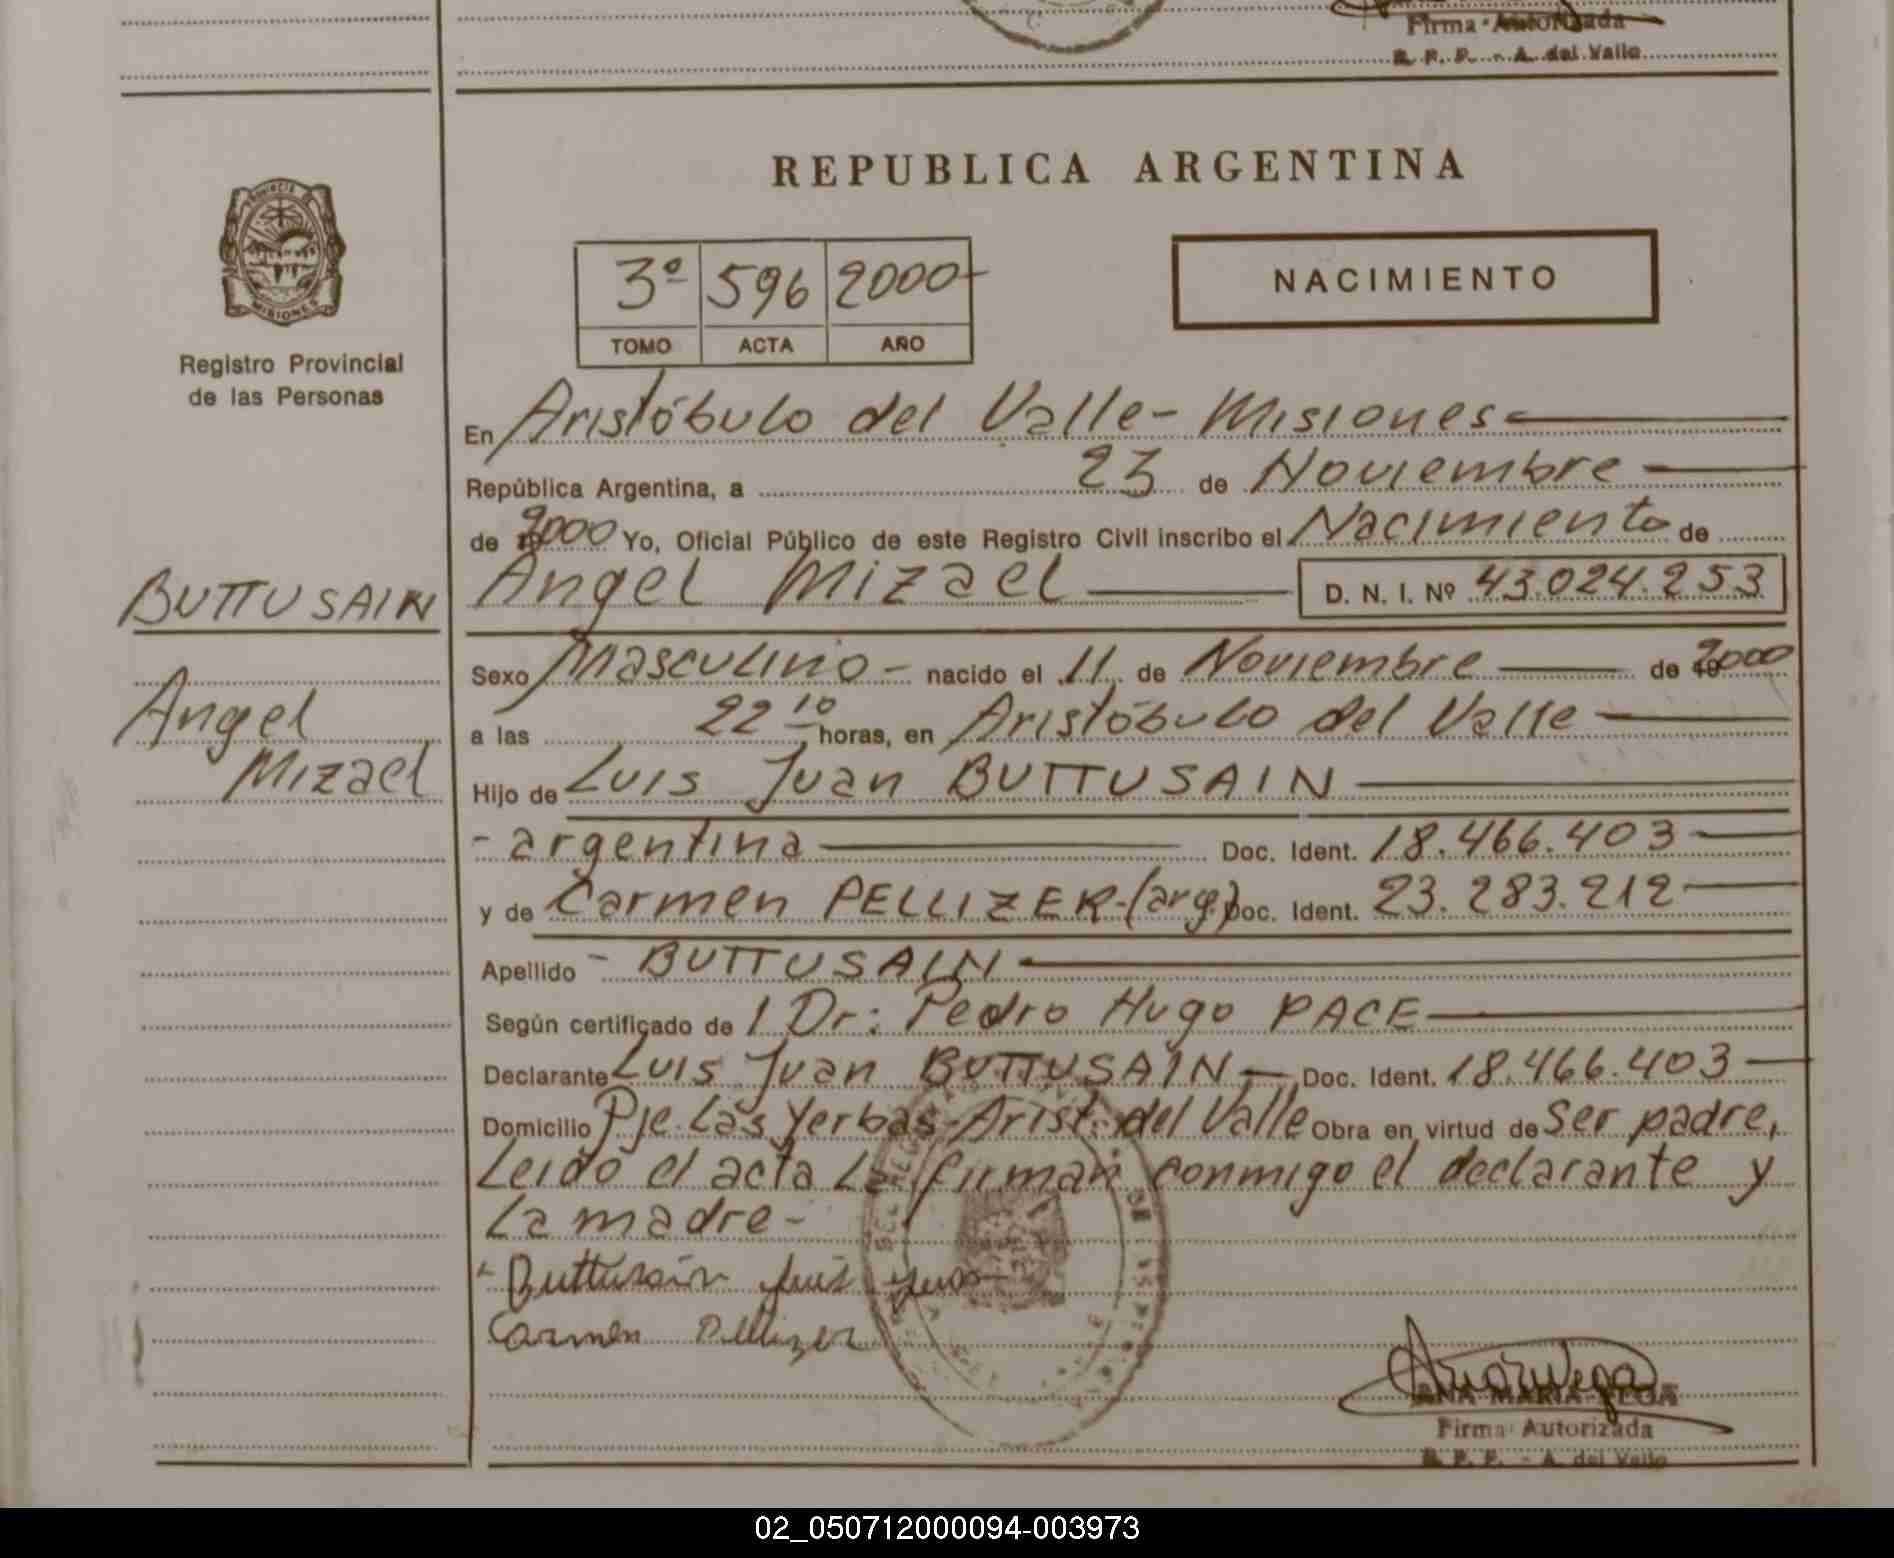 Firma Autorizada
R. P. P. - A. del Valle
REPUBLICA ARGENTINA
PROVINCIA DE
MISIONES
Registro Provincial
de las Personas
3º 596 2000
TOMO ACTA AÑO
NACIMIENTO
En Aristóbulo del Valle - Misiones
República Argentina, a 23 de Noviembre
de 2000 Yo, Oficial Público de este Registro Civil inscribo el Nacimiento de
BUTTUSAIN
Angel
Mizael
Angel Mizael D. N. I. Nº 43.024.253
Sexo Masculino - nacido el 11 de Noviembre de 2000
a las 22 10 horas, en Aristóbulo del Valle
Hijo de Luis Juan BUTTUSAIN
- argentina Doc. Ident. 18.466.403
y de Carmen PELLIZER - (arg.) Doc. Ident. 23.283.212
Apellido - BUTTUSAIN
Según certificado de l Dr: Pedro Hugo PACE
Declarante Luis Juan BUTTUSAIN - Doc. Ident. 18.466.403
Domicilio Pje. Las Yerbas - Arist. del Valle Obra en virtud de Ser padre,
Leido el acta La firman conmigo el declarante y
La madre -
Buttusain Luis Juan
Carmen Pellizer
ANA MARIA VEGA
Firma Autorizada
R. P. P. - A. del Valle
02_050712000094-003973